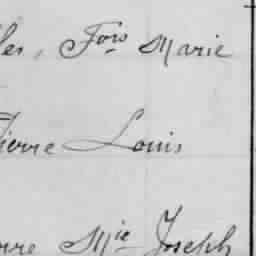 les, Fois Marie
Pierre Louis
Pierre Mie Joseph